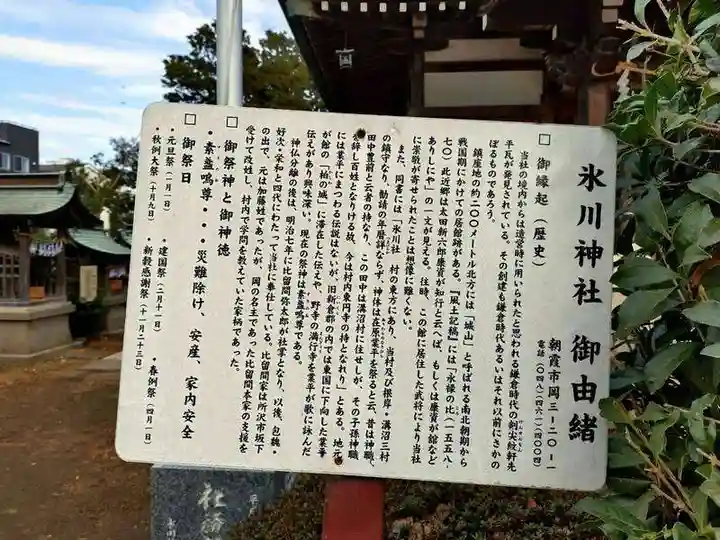 氷川神社 御由緒
朝霞市岡三ー二〇ー一
電話(〇四八)(四六一)(四〇〇四)
□ 御縁起(歴史)
当社の境内からは造営時に用いられたと思われる鎌倉時代の剣尖紋軒先
平瓦が発見されている。その創建も鎌倉時代あるいはそれ以前にさかの
ぼるものであろう。
鎮座地の約二〇〇メートル北方には「城山」と呼ばれる南北朝期から
戦国期にかけての居館跡がある。『風土記稿』には「永禄の比(一五五八
七〇)此近郷は太田新六郎康資が知行と云へば、もしくは康資が舘など
ありしにや」の一文が見える。往時、この館に居住した武将により当社
に崇敬が寄せられたことは想像に難くない。
また、同書には「氷川社 村の東方にあり、当村及び根岸・溝沼三村
の鎮守なり、勧請の年暦詳ならず、神体は在原業平を祭ると云、昔は神職、
田中豊前と云者の持なり、この田中は溝沼村に住せしが、その子孫神職
を辞し百姓となりける故、今は村内東円寺の持となれり」とある。地元
には業平にまつわる伝説はないが、旧新倉郡の内では東国に下向した業平
が館の「柏の城」に滞在した伝えや、野寺の満行寺を業平が歌に詠んだ
伝えがあり興味深い。現在の祭神は素盞鳴尊である。
神仏分離の後は、明治七年に比留間弥太郎が社掌となり、以後、包教・
好次・栄和と四代にわたって当社に奉仕している。比留間家は所沢市坂下
の出で、元は加藤姓であったが、岡の名主であった比留間本家の支援を
受けて改姓し、村内で学問を教えていた家柄であった。
□ 御祭神と御神徳
・素盞鳴尊・・・災難除け、安産、家内安全
□ 御祭日
・元旦祭(一月一日) ・建国祭(二月十一日) ・春例祭(四月一日)
・秋例大祭(十月九日) ・新穀感謝祭(十一月二十三日)
社